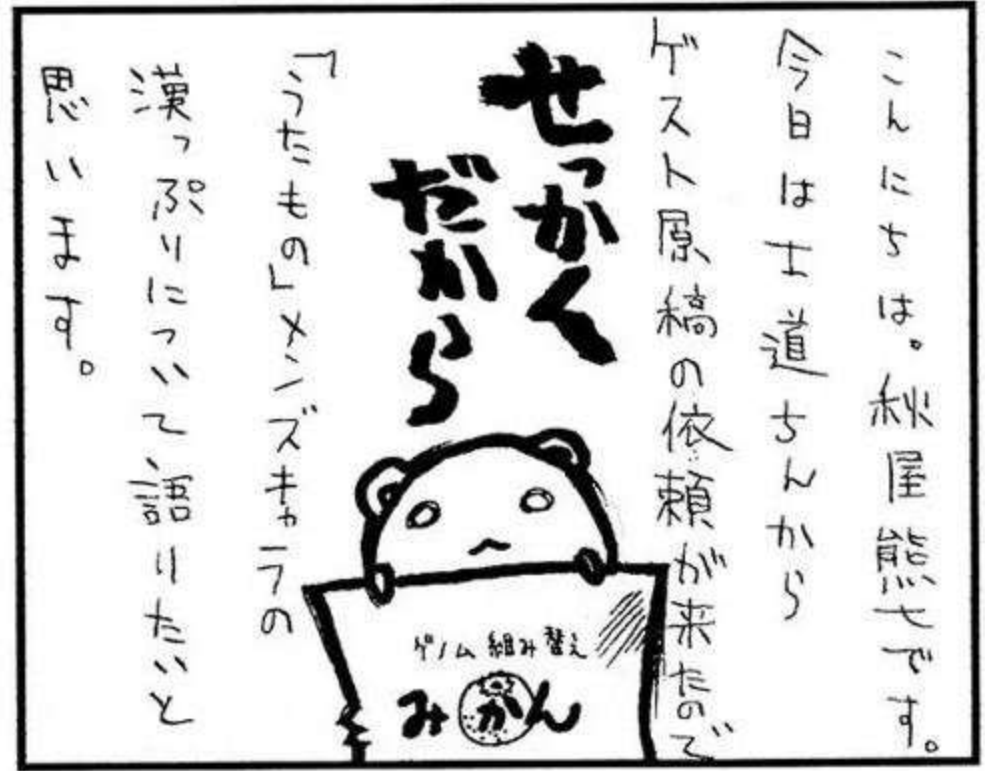 こんにちは。秋屋熊七です。
今日は士道ちんから
ゲスト原稿の依頼が来たので
せっかく
だから
「うたもの」メンズキャラの
漢っぷりについて、語りたいと
思います。
ゲノム組み替え
みかん